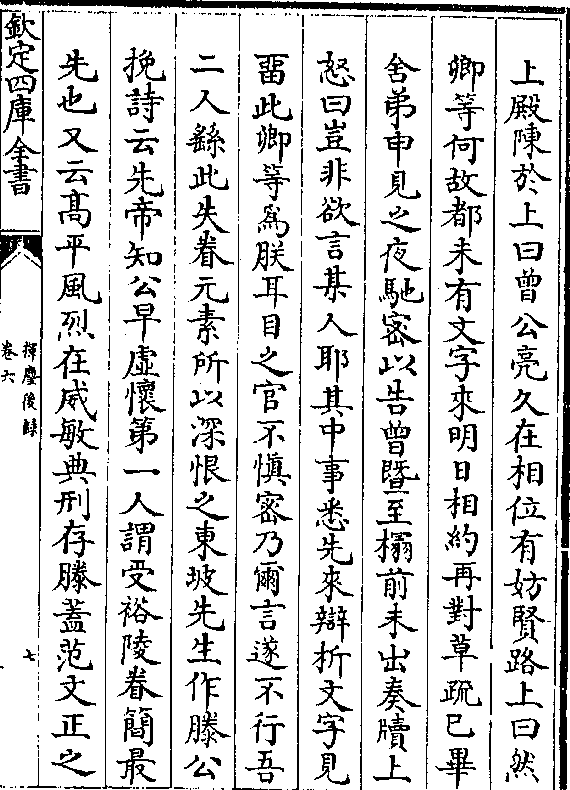 上殿陳於上曰曾公亮久在相位有妨賢路上曰然
卿等何故都未有文字來明日相約再對草疏已畢
舍弟申見之夜馳密以告曾暨至榻前未出奏牘上
怒曰豈非欲言某人耶其中事悉先來辯析文字見
畱此卿等爲朕耳目之官不慎密乃爾言遂不行吾
二人繇此失眷元素所以深恨之東坡先生作滕公
挽詩云先帝知公早虛懷第一人謂受裕陵眷簡最
先也又云髙平風烈在威敏典刑存滕蓋范文正之
欽定四庫全書
揮麈後錄
卷六
七